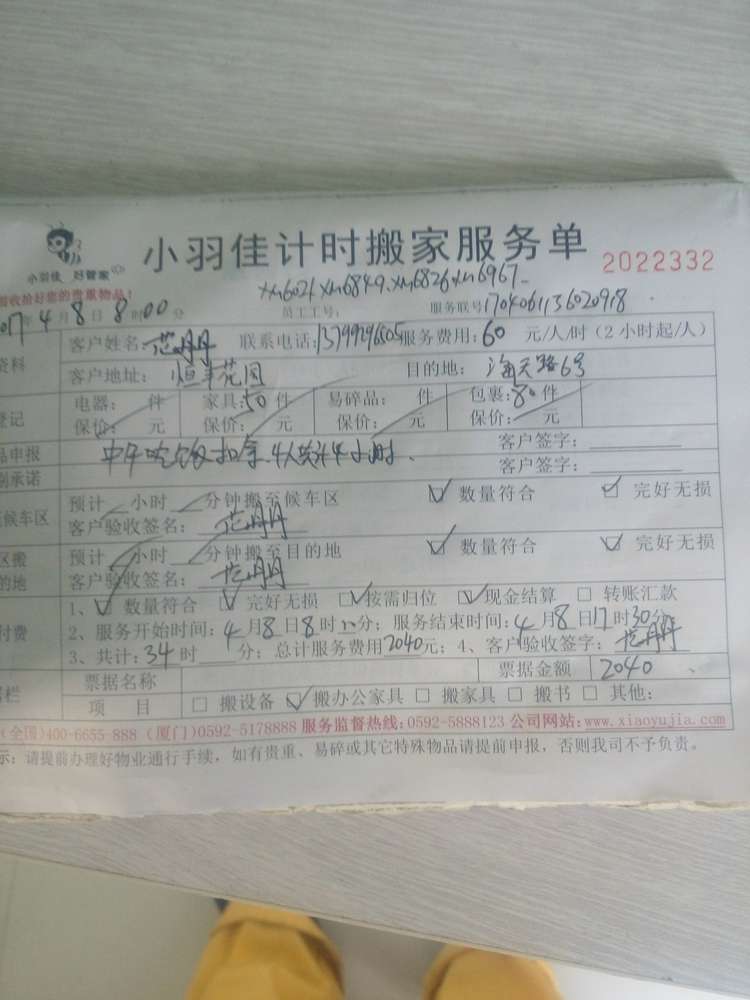 小羽佳计时搬家服务单
2022332
小羽佳 好管家
收拾好您的贵重物品!
xm6021 xm6849. xm6826 xm6967
员工工号: 服务联号1704061136020918
017年4月8日8时00分
客户姓名: 范丹丹 联系电话:13799296505 服务费用:60 元/人/时(2小时起/人)
资料
客户地址: 恒丰花园 目的地: 海天路6号
电器: 件 家具:50件 易碎品: 件 包裹:80件
登记
保价: 元 保价: 元 保价: 元 保价: 元
品申报 中午吃饭扣除.4人共计4小时. 客户签字:
别承诺 客户签字:
预计 小时 分钟搬至候车区 ☑ 数量符合 ☑ 完好无损
候车区
客户验收签名: 范丹丹
预计 小时 分钟搬至目的地 ☑ 数量符合 ☑ 完好无损
区搬
的地 客户验收签名: 范丹丹
1、☑ 数量符合 ☑ 完好无损 ☑ 按需归位 ☑ 现金结算 □ 转账汇款
2、服务开始时间:4月8日8时 分; 服务结束时间:4月8日17时30分
付费
3、共计:34时 分; 总计服务费用2040元; 4、客户验收签字: 范丹丹
票据名称 票据金额 2040
栏
项 目 □ 搬设备 ☑ 搬办公家具 □ 搬家具 □ 搬书 □ 其他:
(全国)400-6655-888 (厦门)0592-5178888 服务监督热线:0592-5888123 公司网站:www.xiaoyujia.com
示: 请提前办理好物业通行手续, 如有贵重、易碎或其它特殊物品请提前申报, 否则我司不予负责。